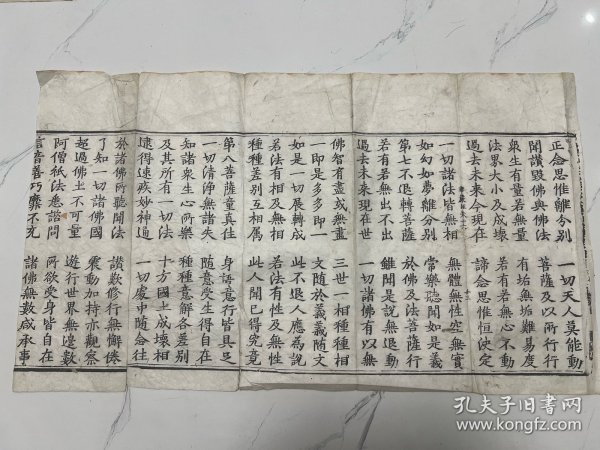 正念思惟離分別 一切天人莫能動
聞讃毀佛與佛法 菩薩及以所行行
衆生有量若無量 有垢無垢難易度
法界大小及成壞 若有若無心不動
過去未來今現在 諦念思惟恒決定
一切諸法皆無相 無體無性空無實
如幻如夢離分別 常樂聽聞如是義
第七不退轉菩薩 於佛及法菩薩行
若有若無出不出 雖聞是說無退動
過去未來現在世 一切諸佛有以無
佛智有盡或無盡 三世一相種種相
一即是多多即一 文隨於義義隨文
如是一切展轉成 此不退人應為說
若法有相及無相 若法有性及無性
種種差別互相屬 此人聞已得究竟
第八菩薩童真住 身語意行皆具足
一切清淨無諸失 隨意受生得自在
知諸衆生心所樂 種種意解各差別
及其所有一切法 十方國土成壞相
逮得速疾妙神通 一切處中隨念往
於諸佛所聽聞法 讃歎修行無懈倦
了知一切諸佛國 震動加持亦觀察
超過佛土不可量 遊行世界無邊數
阿僧祇法悉諮問 所欲受身皆自在
言音善巧靡不充 諸佛無數咸承事
孔夫子旧书网
www.kongfz.com